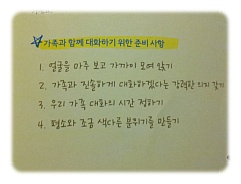 가족과 함께 대화하기 위한 준비 사항
1. 얼굴을 마주 보고 가까이 모여 앉기
2. 가족과 진솔하게 대화하겠다는 강력한 의지 갖기
3. 우리 가족 대화의 시간 정하기
4. 평소와 조금 색다른 분위기를 만들기